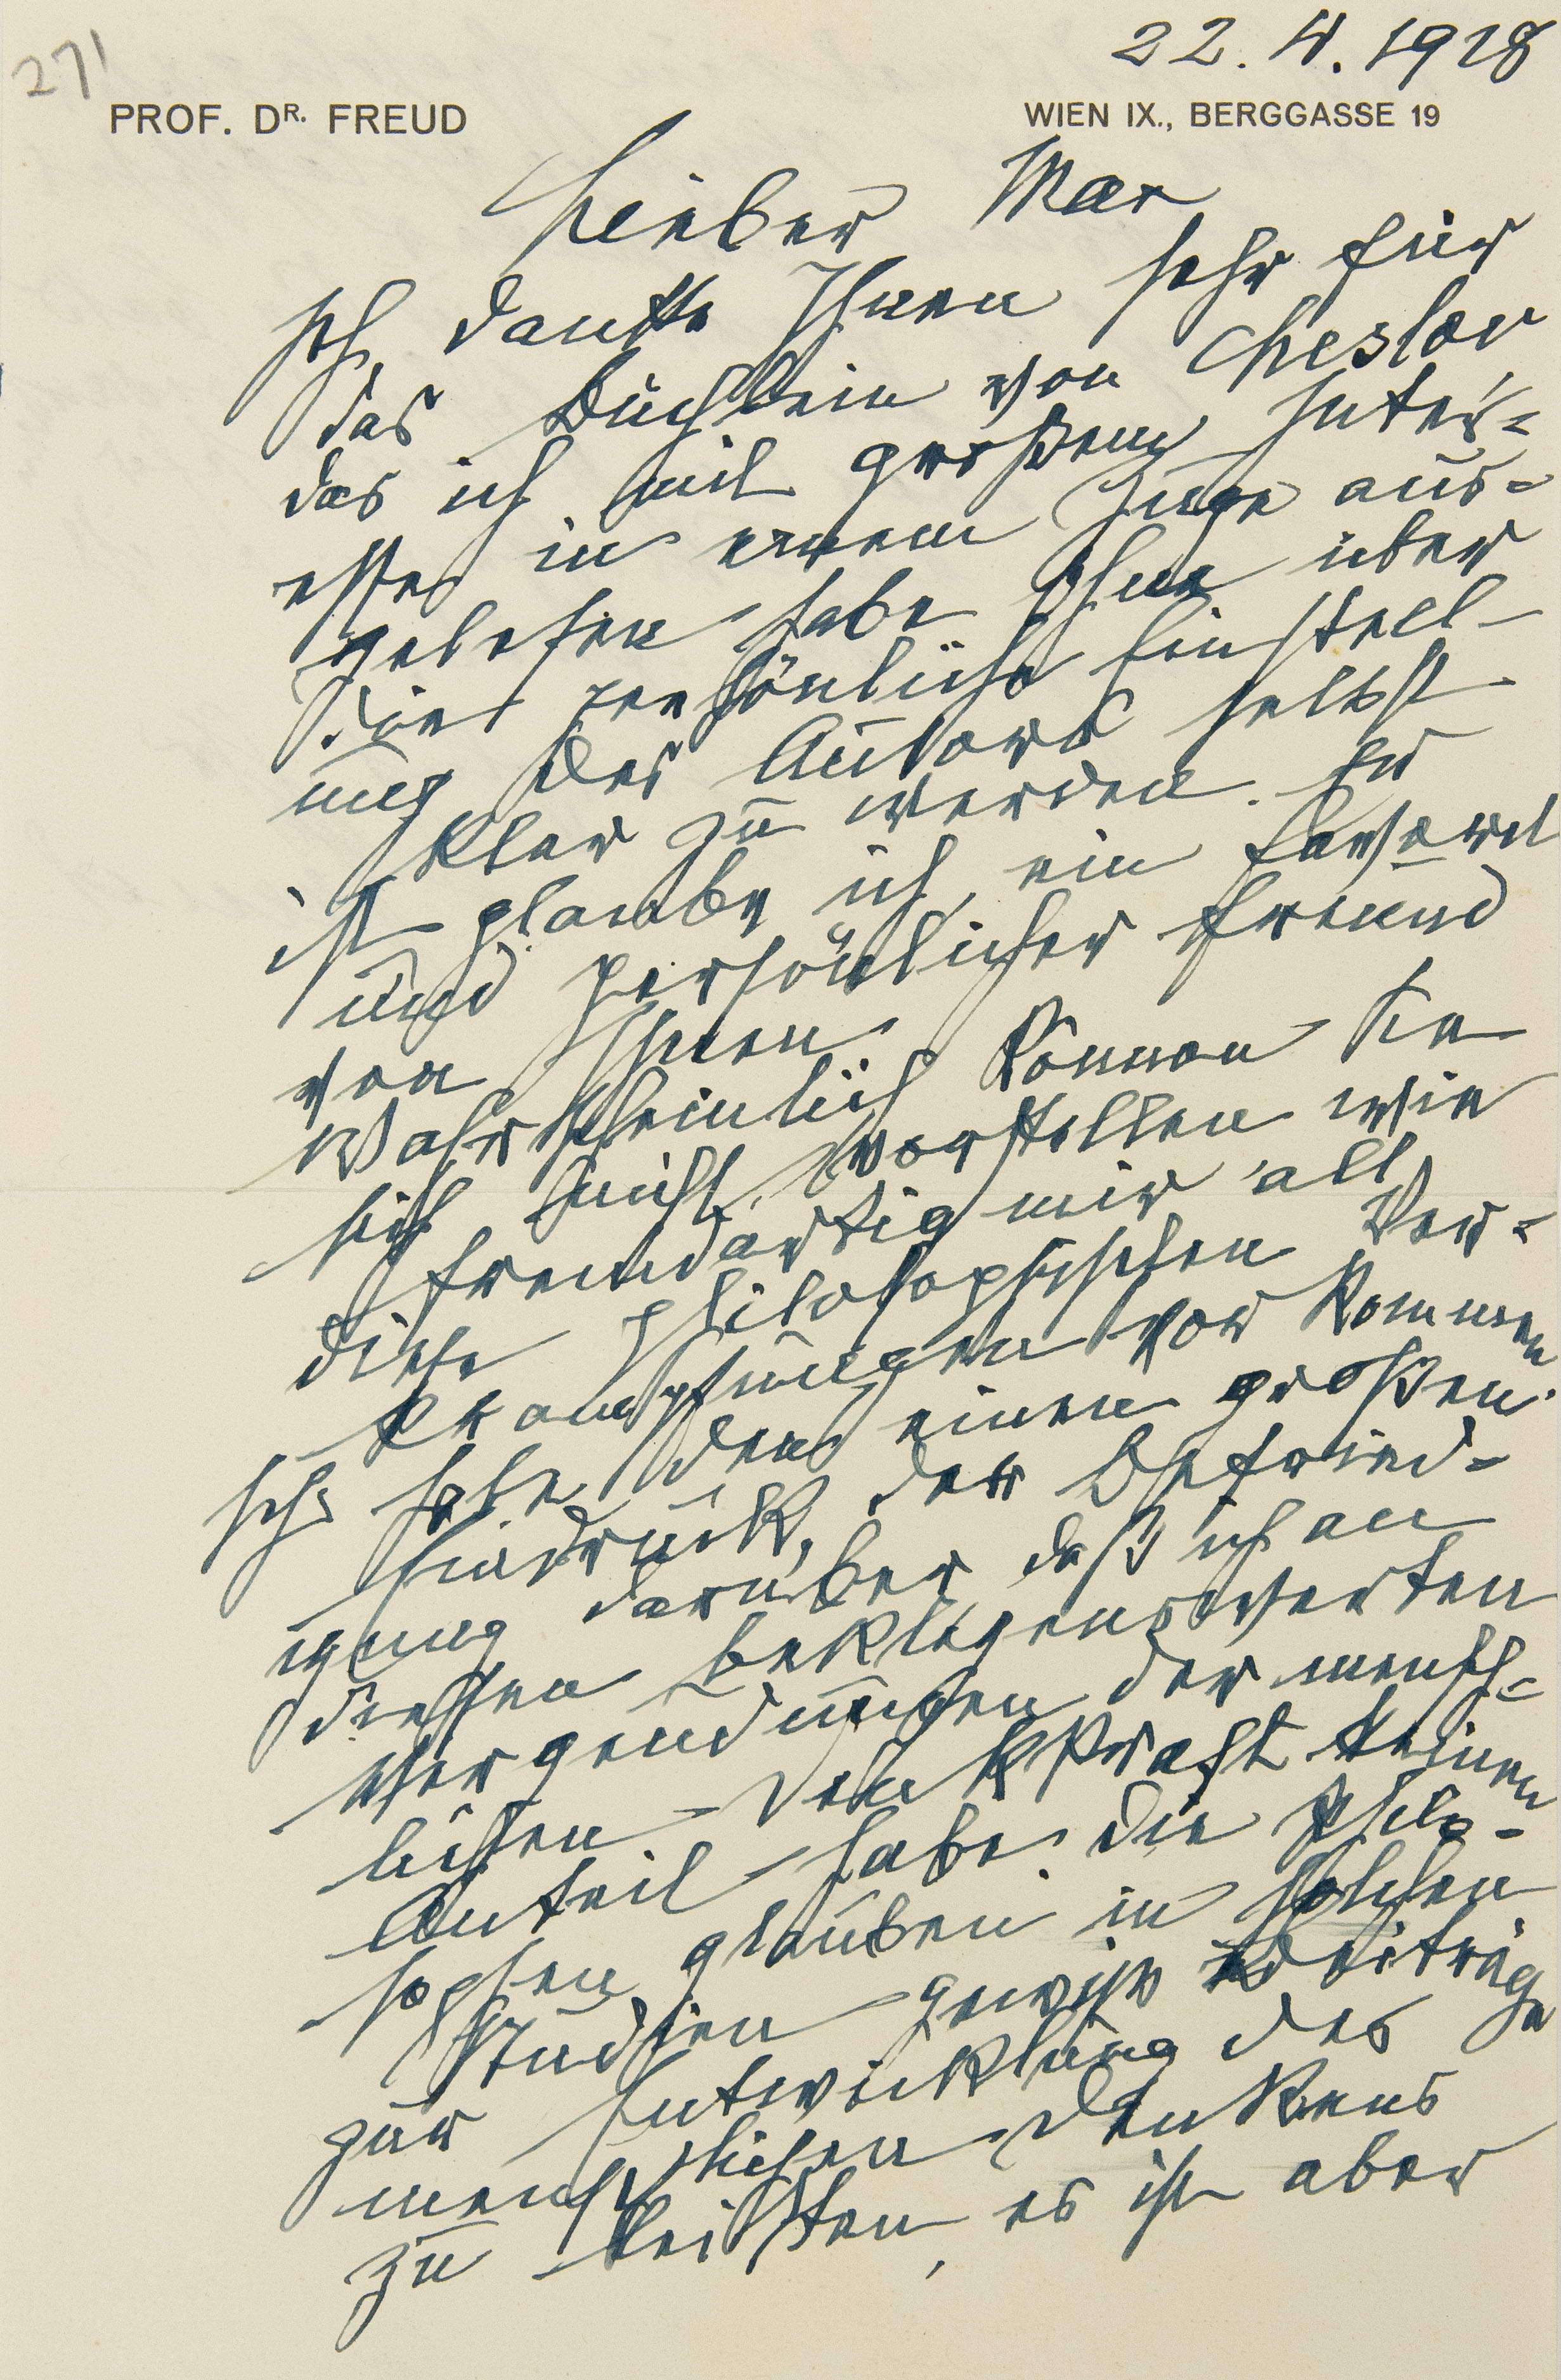 271
22. IV. 1928
PROF. DR. FREUD
WIEN IX., BERGGASSE 19
Lieber Max
Ich danke Ihnen sehr für
das Büchlein von Chestov
das ich mit großem Inter-
esse in einem Zuge aus-
gelesen habe ohne über
die persönliche Einstell-
ung des Autors selbst
klar zu werden. Er
ist glaube ich ein
und persönlicher Freund
von Ihnen.
Wahrscheinlich können Sie
sich nicht vorstellen wie
fremdartig mir all
diese philosophischen Ver-
krampfungen vorkommen
Ich habe den einen großen
Eindruck, der Befried-
igung darüber daß ich an
diesen beklagenswerten
Vergeudungen der mensch-
lichen Denkkraft keinen
Anteil habe. Die Philo-
sophen glauben in solchen
Studien gewiß Beiträge
zur Entwicklung des
menschlichen Denkens
zu leisten, es ist aber